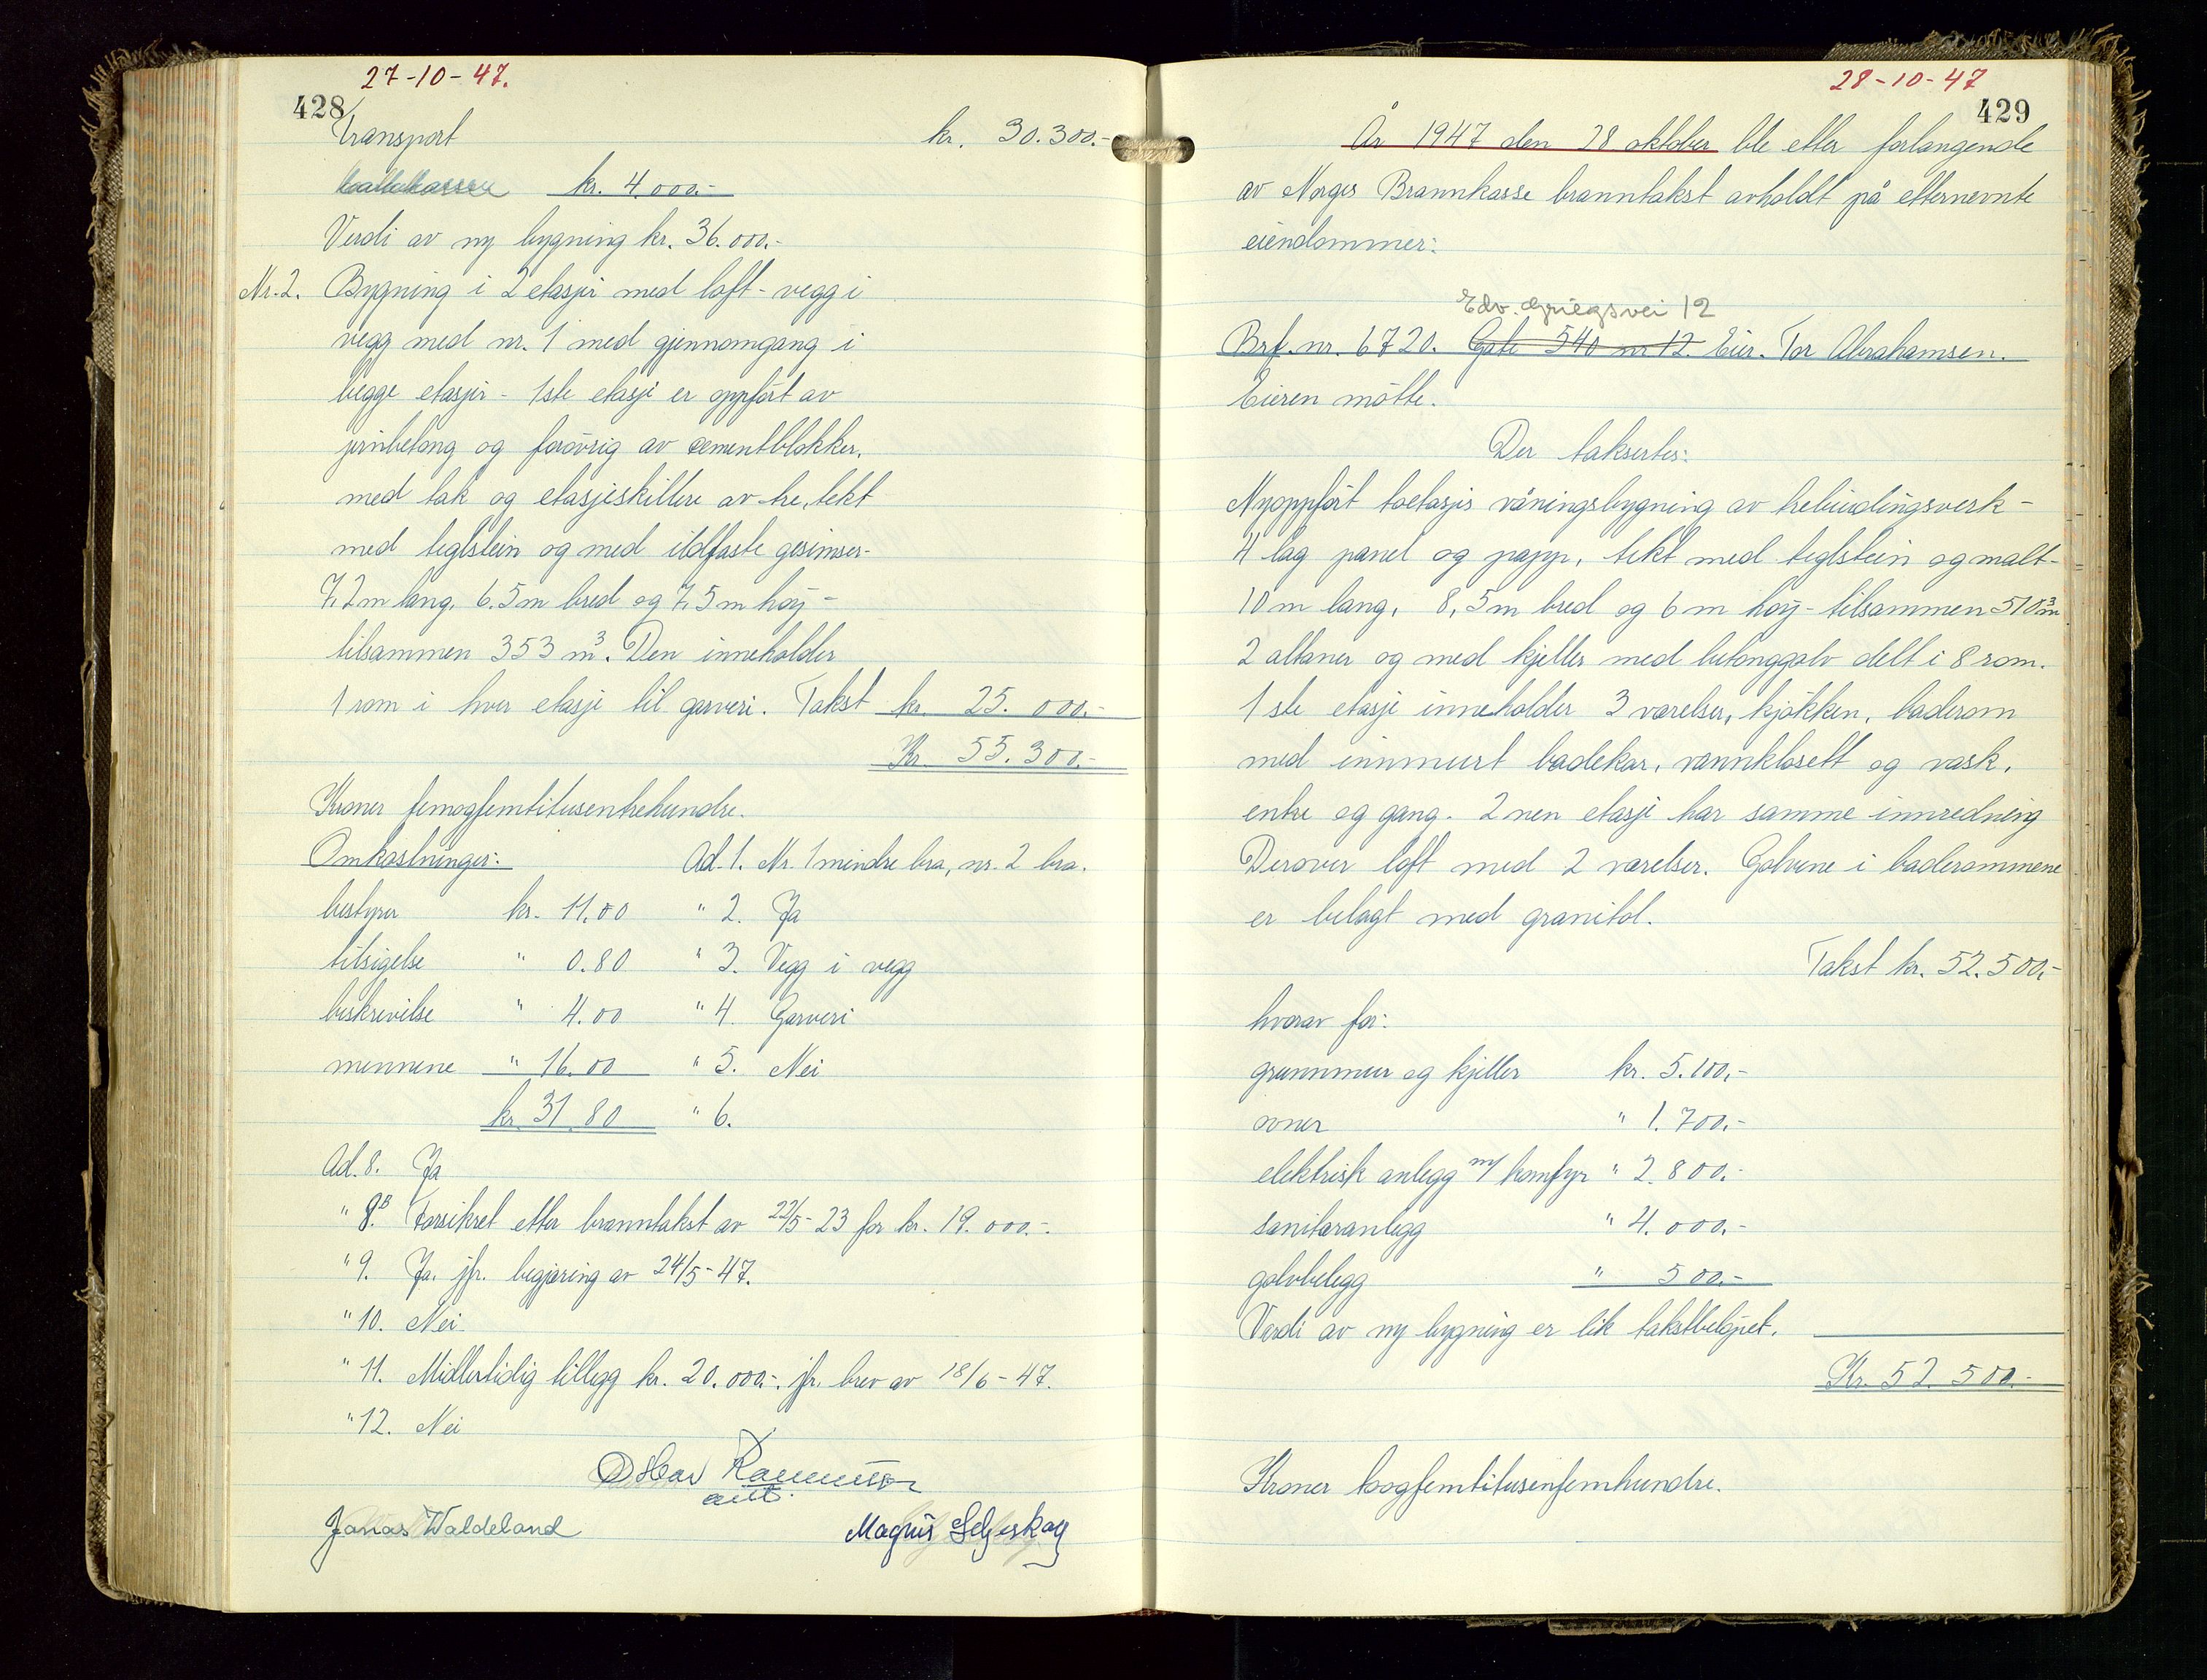 27-10-47.
428
Transport kr. 30.300.-
kr. 4.000.-
Verdi av ny bygning kr. 36.000.-
Nr. 2. Bygning i 2 etasjer med loft - vegg i
vegg med nr. 1 med gjennomgang i
begge etasjer - 1ste etasje er oppført av
jernbetong og forøvrig av cementblokker,
med tak og etasjeskillere av tre, tekt
med teglstein og med ildfaste gesimser-
7,2m lang, 6.5m bred og 7,5m høy -
tilsammen 353 m³. Den inneholder
1 rom i hver etasje til garveri. Takst kr. 25.000.-
Kr. 55.300.-
Kroner femogfemtitusentrehundre.
Omkostninger: Ad. 1. Nr. 1 mindre bra, nr. 2 bra.
bestyrer kr. 11.00 " 2. Ja
tilsigelse " 0.80 " 3. Vegg i vegg
beskrivelse " 4.00 " 4. Garveri
mennene " 16.00 " 5. Nei
kr. 31.80 " 6.
Ad. 8. Ja
" 8B. Forsikret etter branntakst av 22/5-23 for kr. 19.000.-.
" 9. Ja. jfr. begjæring av 24/5-47.
" 10. Nei
" 11. Midlertidig tillegg kr. 20.000.-. jfr. brev av 18/6-47.
" 12. Nei
Oskar Rasmussen
Jonas Waldeland Magnus Seljeskog
28-10-47
429
År 1947 den 28 oktober ble etter forlangende
av Norges Brannkasse branntakst avholdt på etternevnte
eiendommer:
Edv. Griegsvei 12
Brf. nr. 6720. Gate 540 nr 12. Eier. Tor Abrahamsen.
Eieren møtte.
Der taksertes:
Nyoppført toetasjes våningsbygning av trebindingsverk -
4 lag panel og papp, tekt med teglstein og malt-
10 m lang, 8,5m bred og 6 m høy - tilsammen 510 m³
2 altaner og med kjeller med betonggolv delt i 8 rom.
1 ste etasje inneholder 3 værelser, kjøkken, baderom
med innmurt badekar, vannklosett og vask,
entre og gang. 2 nen etasje har samme innredning
Derover loft med 2 værelser. Golvene i baderommene
er belagt med granitol.
Takst kr. 52.500,-
hvorav for:
grunnmur og kjeller kr. 5.100,-
ovner " 1.700.-
elektrisk anlegg m/ komfyr " 2.800.-
sanitæranlegg " 4.000.-
golvbelegg " 500.-
Verdi av ny bygning er lik takstbeløpet.
Kr. 52.500.-
Kroner toogfemtitusenfemhundre.